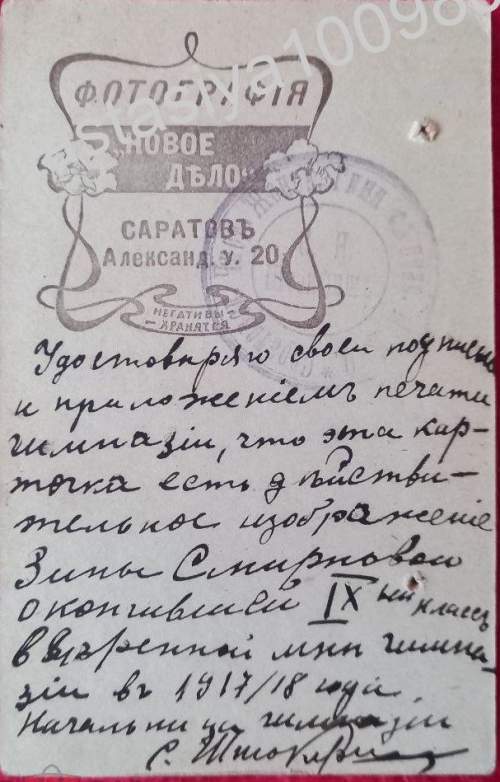 Stasiya10098
ФОТОГРАФІЯ
„НОВОЕ
ДѢЛО“
САРАТОВЪ
Александ. у. 20
НЕГАТИВЫ
ХРАНЯТСЯ
Удостовѣряю своей подписью
и приложеніемъ печати
гимназіи, что эта кар-
точка есть дѣйстви-
тельное изображеніе
Зины Смирновой
окончившей IX ый классъ
ввѣренной мнѣ гимна-
зіи въ 1917/18 году.
Начальница гимназіи
С.